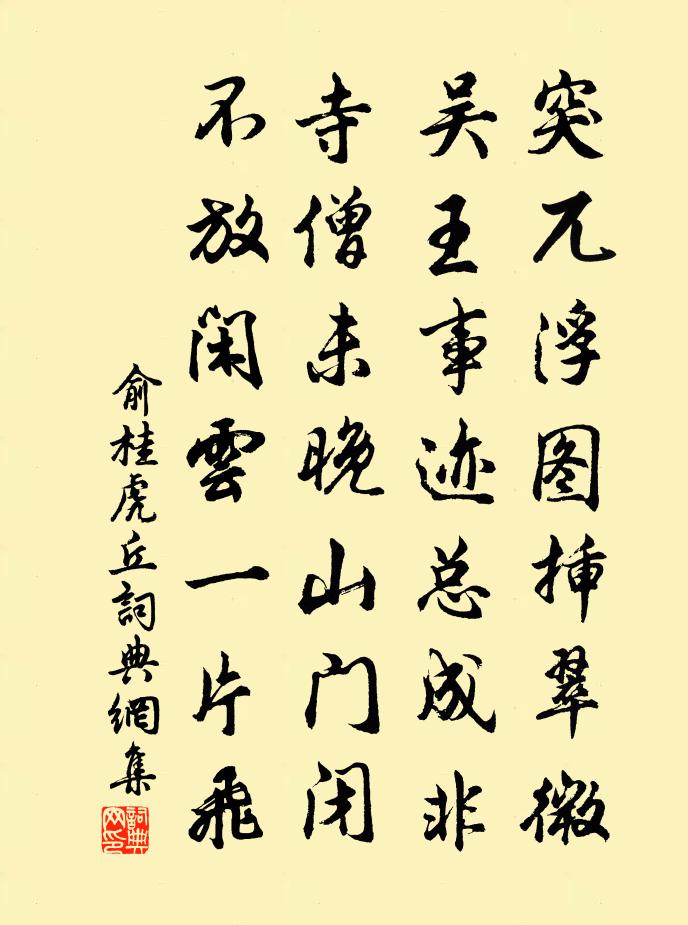 突兀浮图插翠微
吴王事迹总成非
寺僧未晚山门闭
不放闲雲一片飛
俞桂虎丘詞典網集
詞典网印